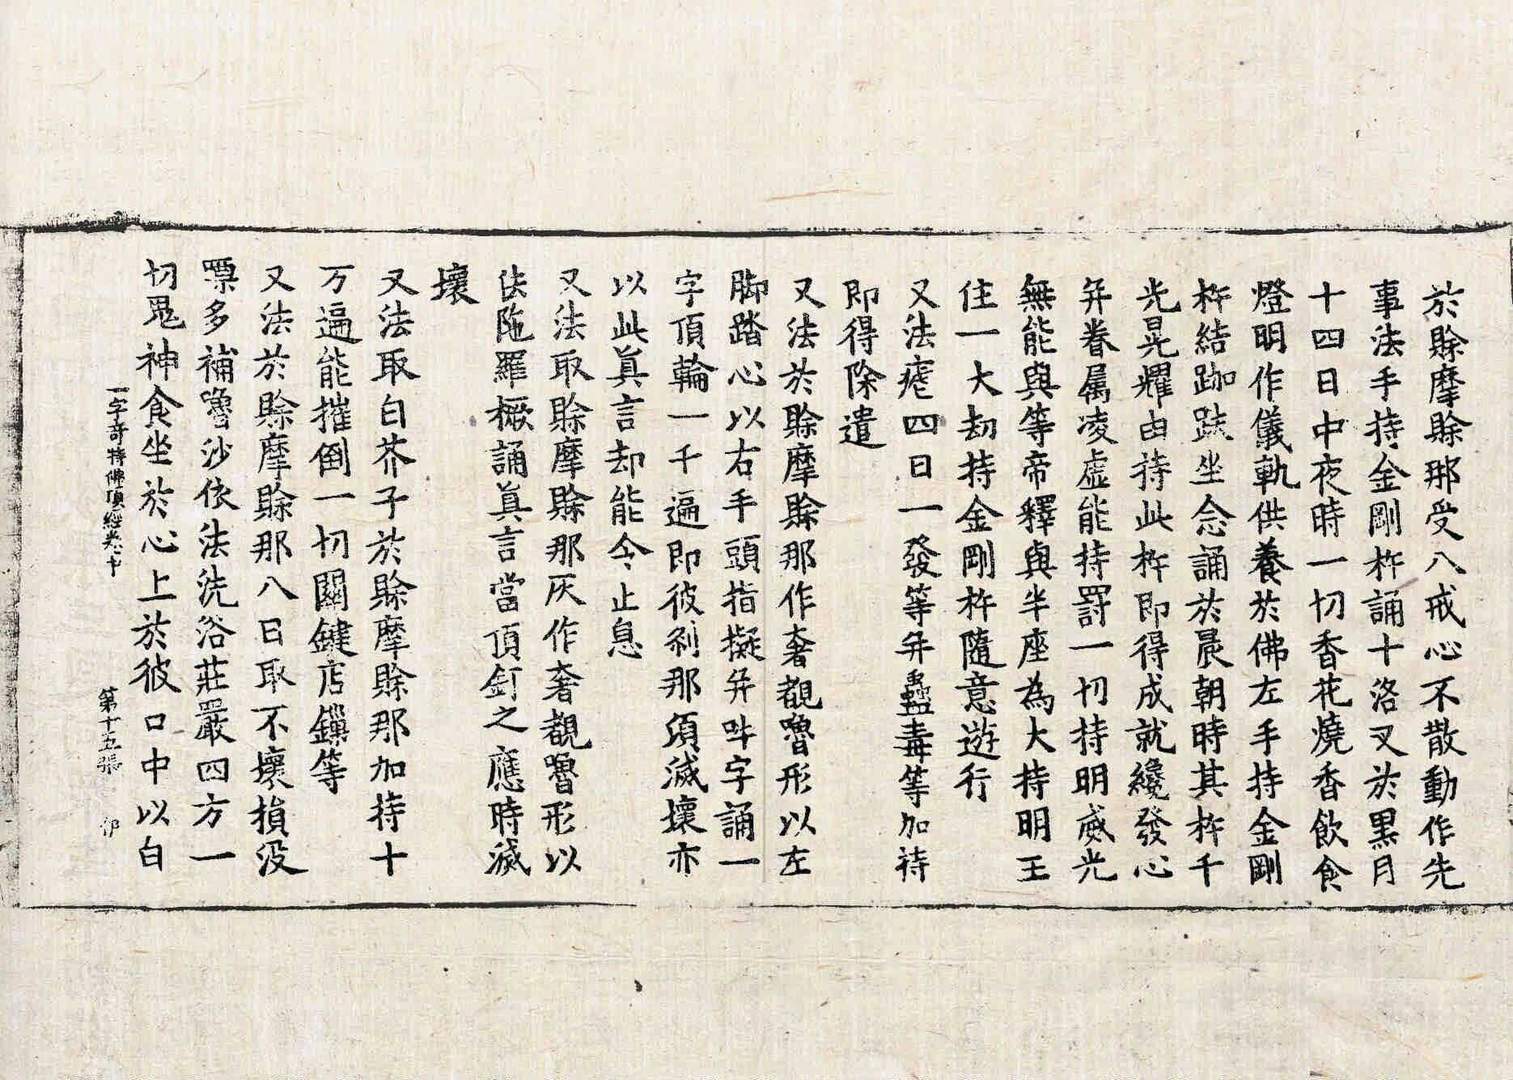 於賖摩賖那受八戒心不散動作先
事法手持金剛杵誦十洛叉於黑月
十四日中夜時一切香花燒香飲食
燈明作儀軌供養於佛左手持金剛
杵結跏趺坐念誦於晨朝時其杵千
光晃耀由持此杵即得成就纔發心
并眷属凌虚能持罰一切持明威光
無能與等帝釋與半座為大持明王
住一大劫持金剛杵隨意遊行
又法瘧四日一發等并蠱毒等加持
即得除遣
又法於賖摩賖那作奢覩嚕形以左
脚踏心以右手頭指擬并吽字誦一
字頂輪一千遍即彼刹那須滅壞亦
以此真言却能令止息
又法取賖摩賖那灰作奢覩嚕形以
佉陁羅橛誦真言當頂釘之應時滅
壞
又法取白芥子於賖摩賖那加持十
万遍能摧倒一切關鍵店鏁等
又法於賖摩賖那八日取不壞損没
嘌多補嚕沙依法洗浴莊嚴四方一
切鬼神食坐於心上於彼口中以白
一字奇特佛頂經卷中 第十五張